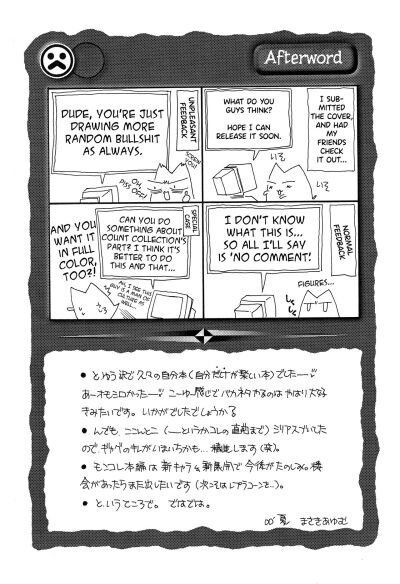 Afterword
I SUB-
MITTED
THE COVER,
AND HAD
MY FRIENDS
CHECK
IT OUT...
WHAT DO YOU
GUYS THINK?
HOPE I CAN
RELEASE IT SOON.
UNPLEASANT
FEEDBACK
DUDE, YOU'RE JUST
DRAWING MORE
RANDOM BULLSHIT
AS ALWAYS.
OH,
PISS OFF!
NORMAL
FEEDBACK
I DON'T KNOW
WHAT THIS IS...
SO ALL I'LL SAY
IS 'NO COMMENT.'
FIGURES...
SPECIAL
CASE
CAN YOU DO
SOMETHING ABOUT
COUNT COLLECTION'S
PART? I THINK IT'S
BETTER TO DO
THIS AND THAT...
AH, I SEE THIS
GUY IS A MAN OF
CULTURE AS
WELL...
AND YOU
WANT IT
IN FULL
COLOR,
TOO?!
● とゆう訳で久々の自分本(自分だけが楽しい本)でしたー
あーオモシロかったー こーゆー感じでバカネタやるのはやはり大好
きみたいです。いかがでしたでしょうかる
● んでも、ここんとこ(ーというかコレの直前まで)シリアスづいてた
ので、ギャグのキレがいまいちかも… 精進します(笑)。
● モンコレ本編は新キャラ&新展開で今後がたのしみ。機
会があったらまた出したいです(次こそはレプラコーンを…)。
● というところで。ではでは。
00' 夏 まさきあゆむ